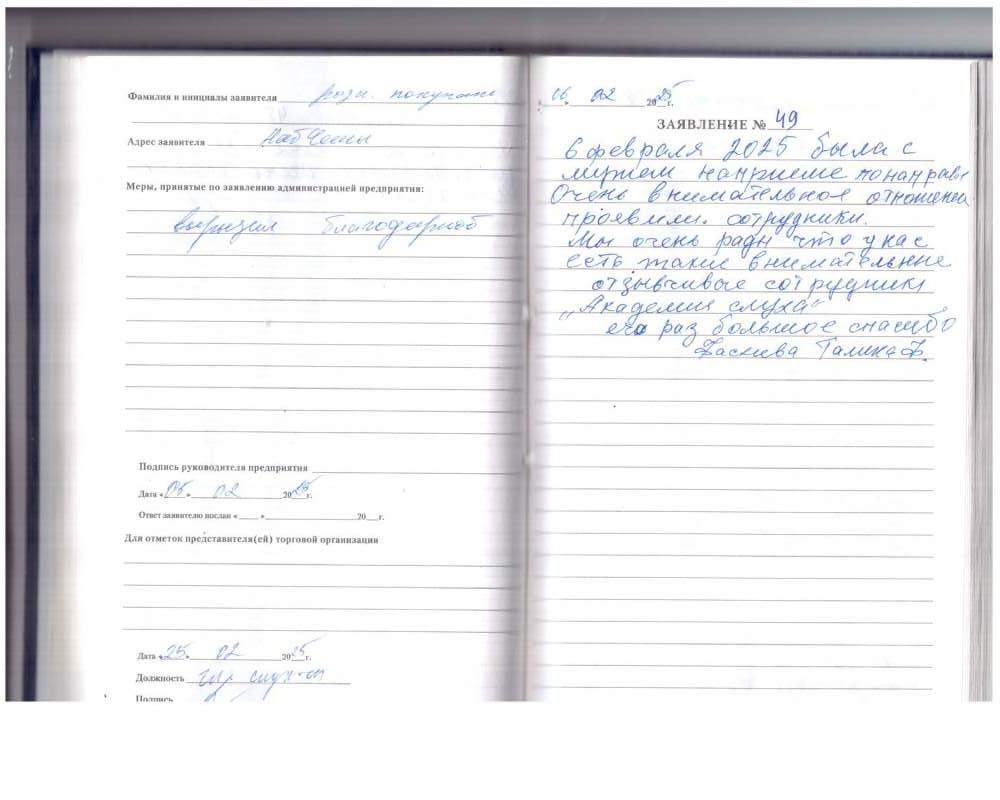 Фамилия и инициалы заявителя розн. покупатель
Адрес заявителя Наб Челны
Меры, принятые по заявлению администрацией предприятия:
Подпись руководителя предприятия
Дата « 05 » 02 20 25 г.
Ответ заявителю послан « » 20 г.
Для отметок представителя(ей) торговой организации
Дата « 25 » 02 20 25 г.
Должность
Подпись
16. 02 20 25 г.
ЗАЯВЛЕНИЕ № 49
6 февраля 2025 была с
мужем на приеме по направл
Очень внимательное отношение
проявили сотрудники.
Мы очень рады что у нас
есть такие внимательные
отзывчивые сотрудники
„Академии слуха“
раз большое спасибо
Галина